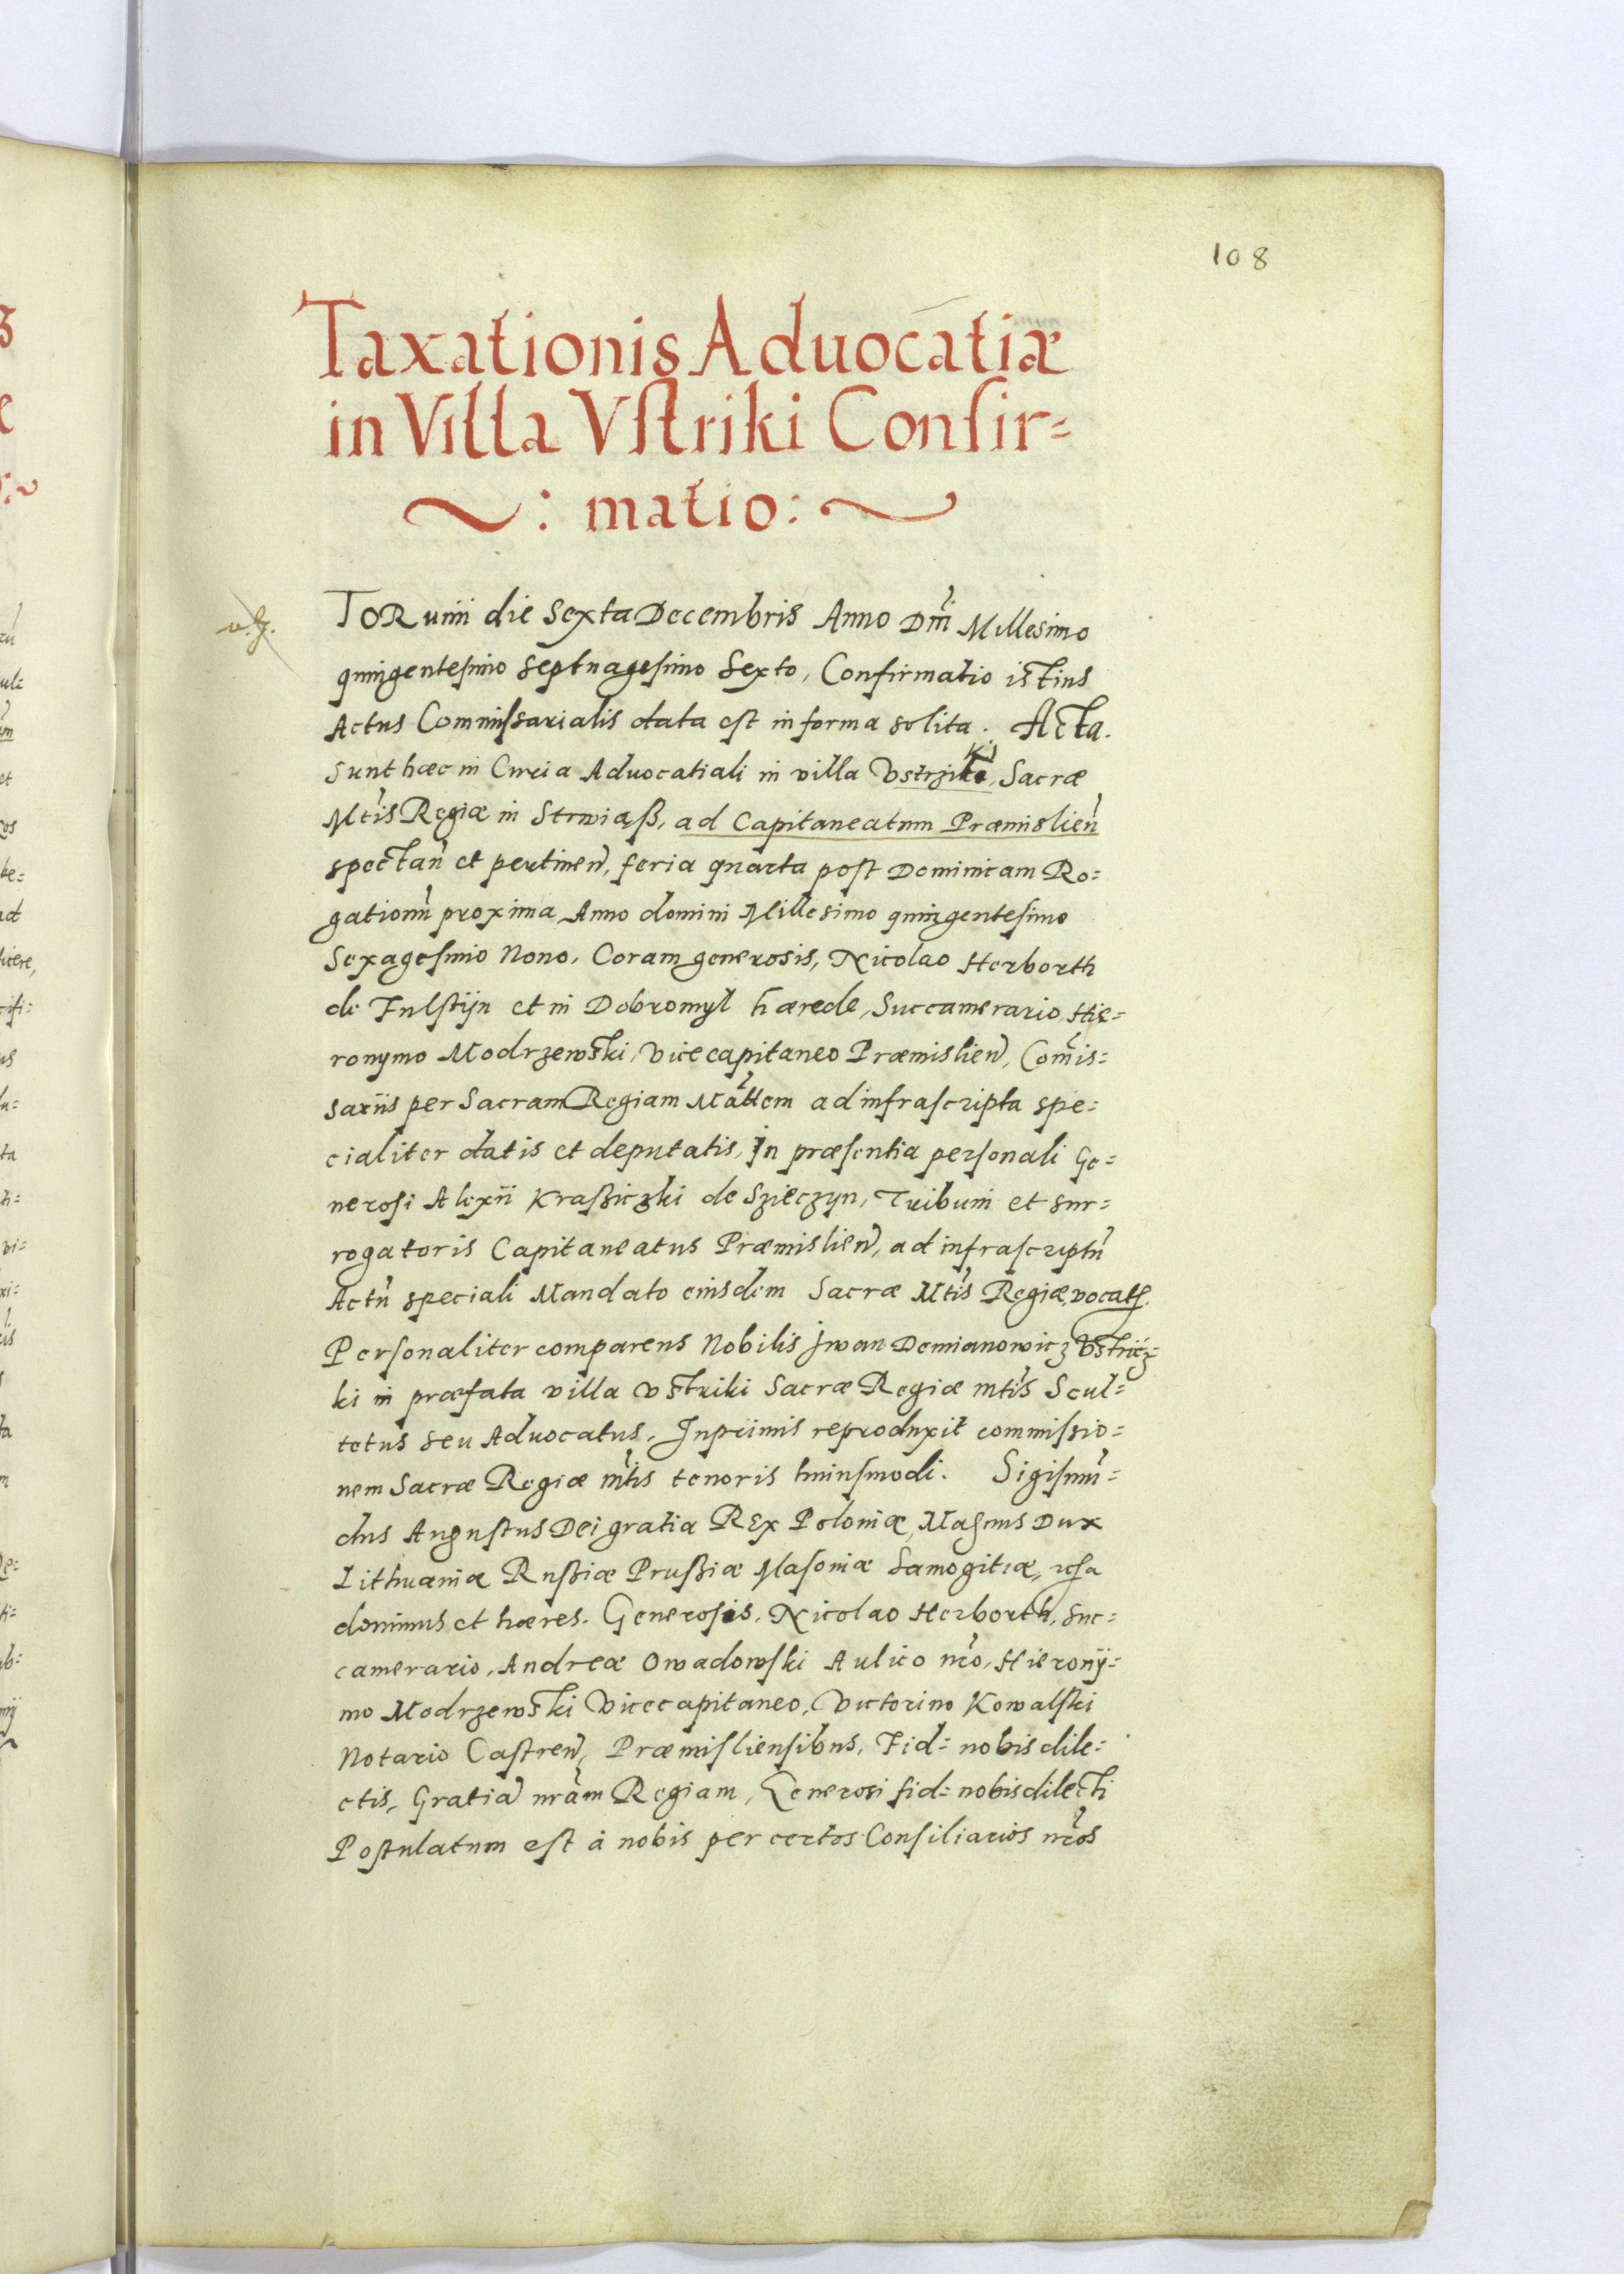 108
Taxationis Aduocatiæ
in Villa Vstriki Confir=
: matio :
TORunii die Sexta Decembris Anno Dni Millesimo
quingentesimo septuagesimo Sexto, Confirmatio istius
Actus Commissarialis data est in forma solita. Acta.
Sunt hæc in Curia Aduocatiali in villa Vstrziki, Sacræ
Mtis Regiæ in Strwiąß, ad Capitaneatum Præmislien
spectan et pertinen, feria quarta post Dominicam Ro=
gationu proxima Anno domini Millesimo quingentesimo
Sexagesimo Nono. Coram generosis, Nicolao Herborth
de Fulstijn et in Dobromyl hærede, Succamerario, Hie=
ronymo Modrzewski, Vicecapitaneo Præmislien, Comis=
sariis per Sacram Regiam Mattem ad infrascripta spe=
cialiter datis et deputatis, in præsentia personali Ge=
nerosi Alexii Kraßiczki de Szieczyn, Tribuni et sur=
rogatoris Capitaneatus Præmislien, ad infrascriptu
Actu speciali Mandato eiusdem Sacræ Mtis Regiæ, vocat.
Personaliter comparens Nobilis Jwan Demianowicz Vstricz=
ki in præfata villa Vstriki Sacræ Regiæ mtis Scul=
tetus seu Aduocatus, Inprimis reproduxit commissio=
nem Sacræ Regiæ mtis tenoris huiusmodi. Sigismu=
dus Augustus Dei gratia REx Poloniæ, Magnus Dux
Lithuaniæ Rußiæ Prußiæ Masoniæ Samogitiæ,
dominus et hæres. Generosis, Nicolao Herborth, Suc=
camerario, Andreæ Owadowski Aulico nro, Hieronÿ=
mo Modrzewski Vicecapitaneo, Victorino Kowalski
Notario Castren, Præmisliensibus, Fid= nobis dile=
ctis, Gratia nram Regiam, Generosi fid= nobis dilecti
Postulatum est à nobis per certos Consiliarios nros